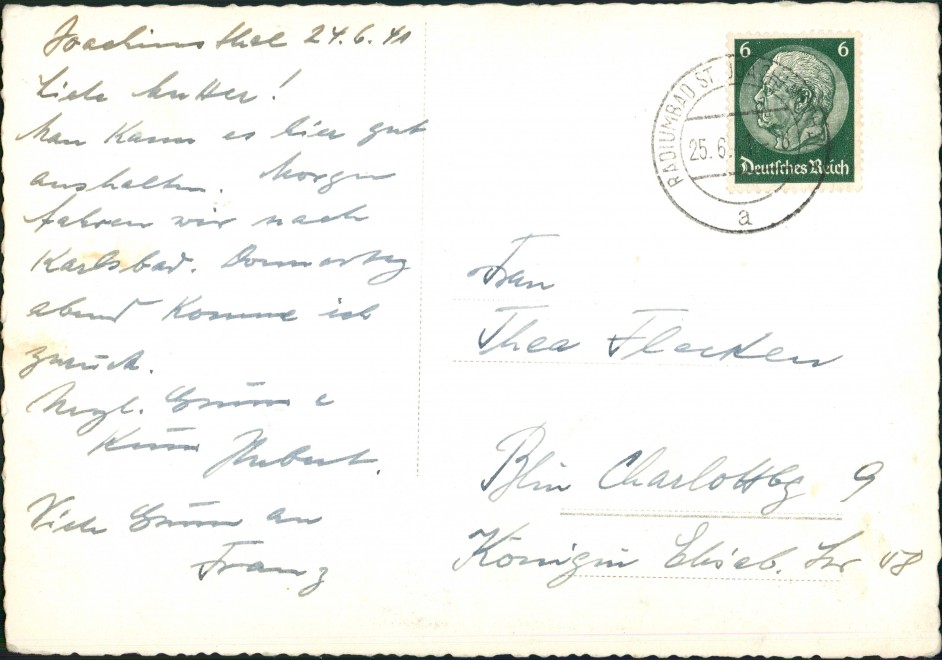 Joachimsthal 24.6.41
Liebe Mutter!
Man kann es hier gut
aushalten. Morgen
fahren wir nach
Karlsbad. Donnerstag
abend komme ich
zurück.
Herzl. Grüsse &
Küsse Hubert.
Viele Grüsse an
Franz
6 6
Deutsches Reich
RADIUMBAD ST. J
25.6.
a
Frau
Thea Flecken
Bln Charlottbg 9
Königin Elisab. Str 48